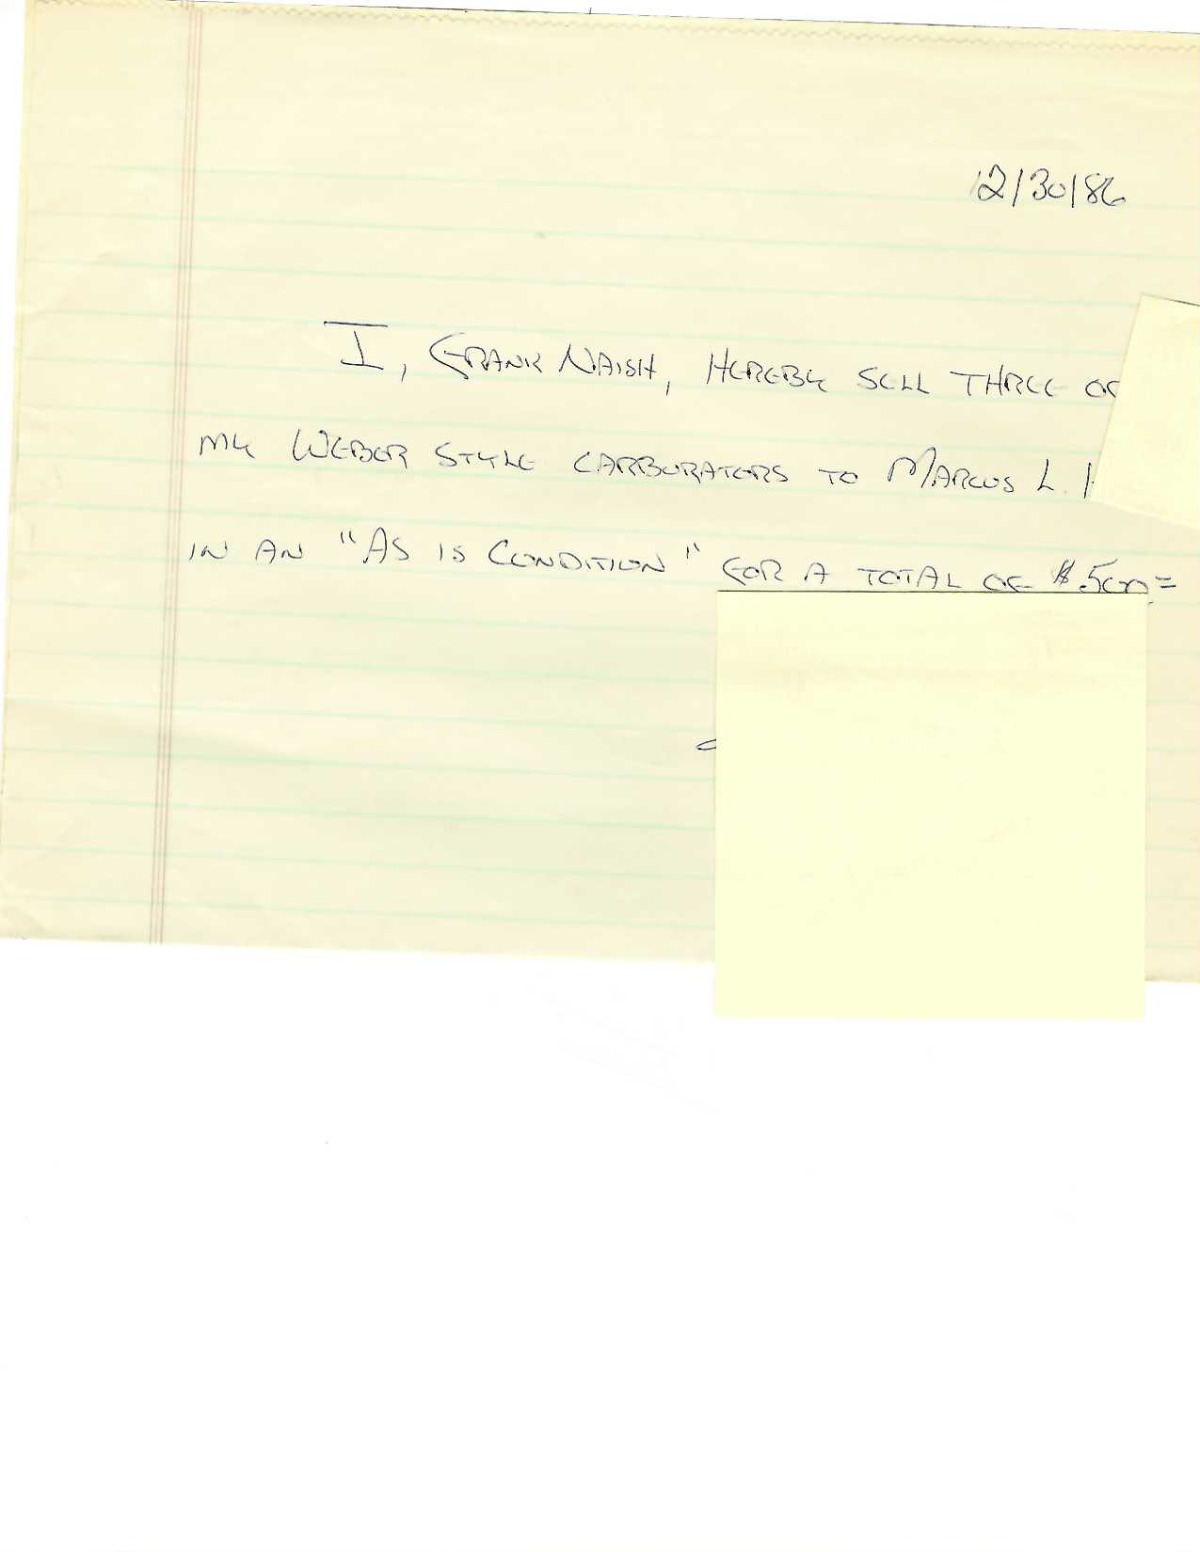 12/30/86
I, FRANK NAISH, HEREBY SELL THREE OF
MY WEBER STYLE CARBURATORS TO MARCUS L.
IN AN "AS IS CONDITION" FOR A TOTAL OF $500=